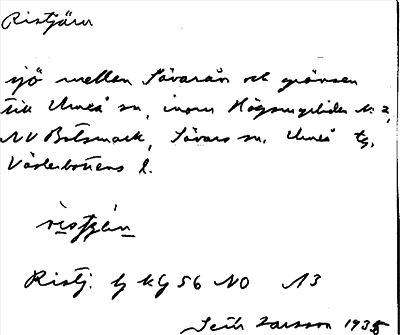 Ristjärn
sjö mellan Sävarån och gränsen
till Umeå sn, inom Högsmyrliden N:2,
NV Botsmark, Sävars sn, Umeå tg,
Västerbottens l.
ristjän
Ristj. G kG 56 NO A3
Larsson 1935